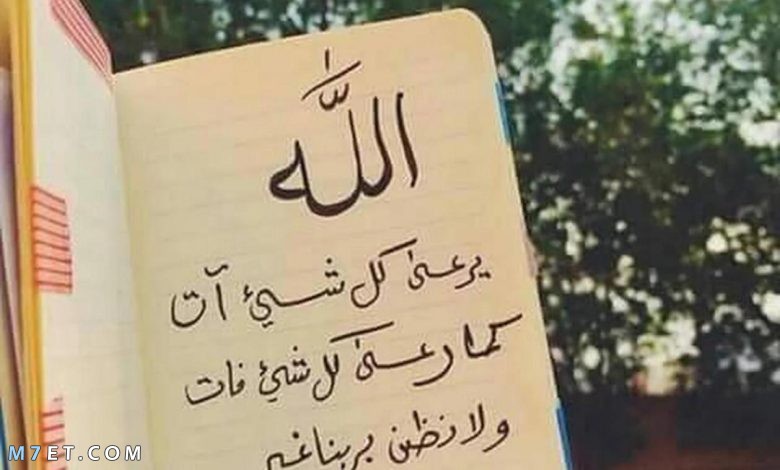 اللَّه
يرعىٰ كل شيء آت
كما رعىٰ كل شيء فات
ولا نظن بربنا غير
M7ET.COM